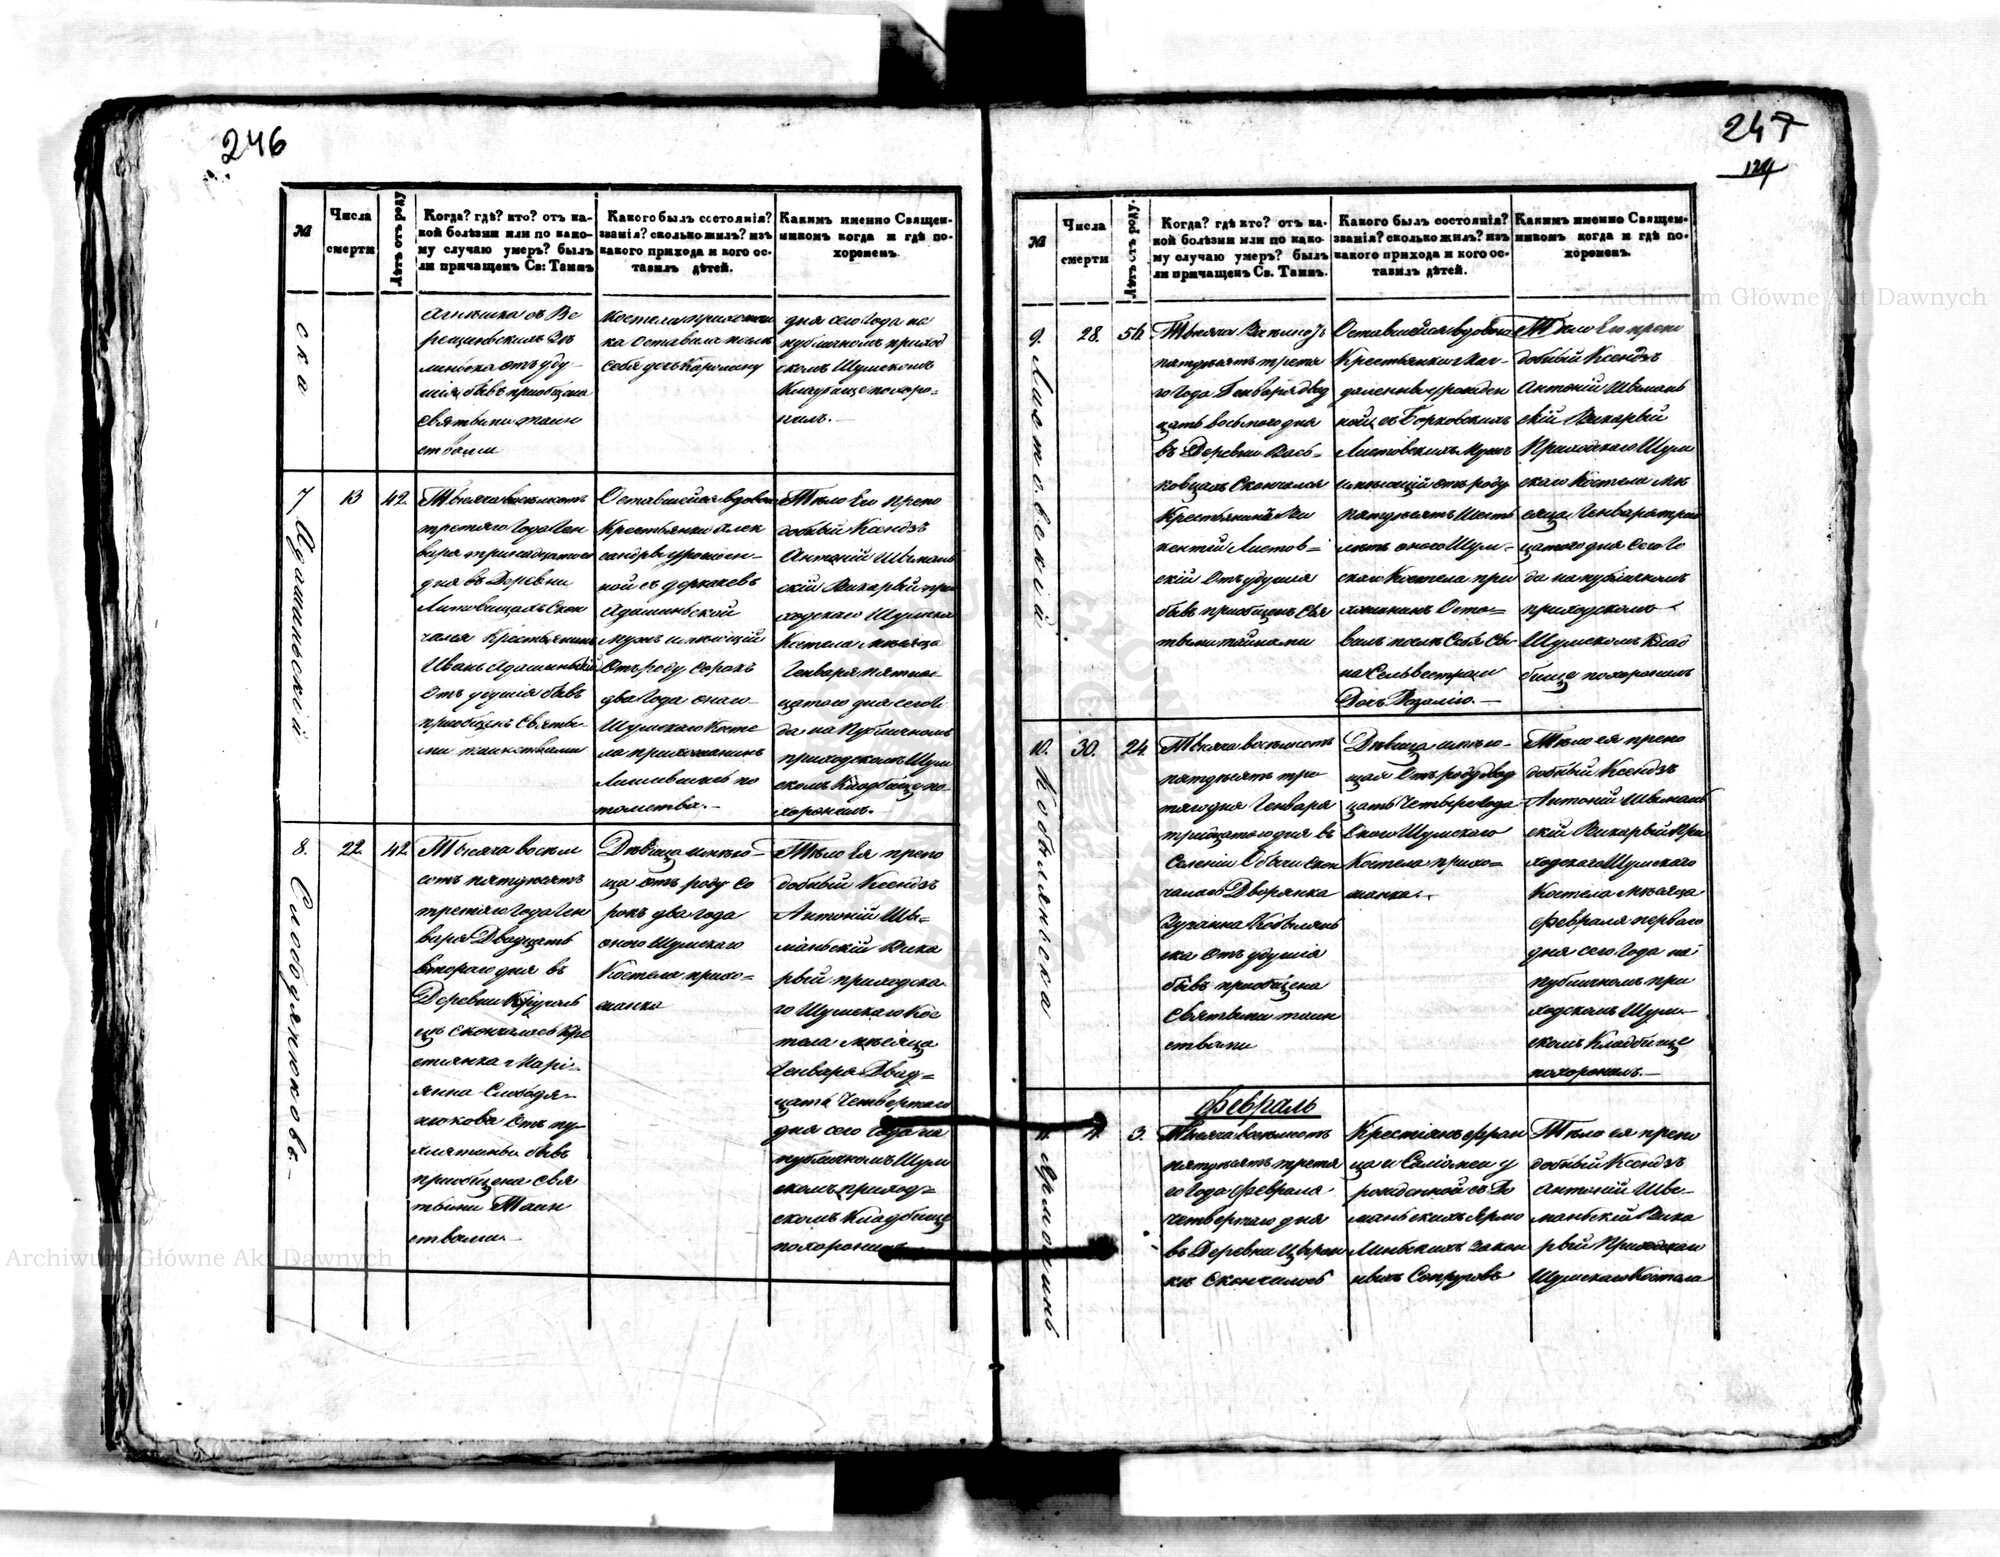 246
№
Числа
смерти
Лѣтъ отъ роду
Когда? гдѣ? кто? отъ ка-
кой болѣзни или по како-
му случаю умеръ? былъ
ли причащенъ Св: Таинъ
Какого былъ состоянія?
званія? сколько жилъ? изъ
какого прихода и кого ос-
тавилъ дѣтей.
Какимъ именно Священ-
никомъ когда и гдѣ по-
хороненъ.
ска
отъ уду-
шія бывъ приобщена
святыми таин
ствами
Костела прихожан
ка Оставила послѣ
Себя дочь Каролину
дня сего Года на
публичномъ приход
скомъ Шумскомъ
Кладбище похоро=
нилъ.—
7
Адашинскій
13
42
Тысяча восемсотъ
третяго Года Ген
варя тринадцатого
дня въ Деревни
Литовищахъ Скон
чался Крестьянинъ
Иванъ Адашинскій
Отъ удушія бывъ
приобщенъ Святы-
ми таинствами
Оставшейся вдовы
Крестьянки Алек
сандры урожден-
ной съ
Адашинской
мужъ имѣющій
Отъ роду сорокъ
два Года онаго
Шумскаго Косте
ла прихожанинъ
по
томства.—
Тѣло Его препо
добный Ксендзъ
Антоній Швиманъ
скій Викарный при
ходскаго Шумска
Костела мѣсяца
Генваря пятнад-
цатого дня сего Го
да на Публичномъ
приходскомъ Шум
скомъ Кладбище по-
хоронилъ.—
8.
Слободянюковъ.—
22
42
Тысяча восем
сотъ пятдесятъ
третяго Года Ген
варя Двадцать
втораго дня въ
Деревни
цѣ скончалась Кре
стянка Марі-
янна Слободя-
нюкова Отъ пу-
хлятины бывъ
пріобщена Свя
тыми Таин
ствами.—
Дѣвица имѣю-
ща отъ роду со
рокъ два года
оного Шумскаго
Костела прихо=
жанка
Тѣло Ея препо
добный Ксендзъ
Антоній Шви=
маньскій Вика
рный приходска
го Шумскаго Кос
тела мѣсяца
Генваря Двад=
цать Четвертаго
дня сего Года на
публичномъ Шум
скомъ приход=
скомъ Кладбище
похоронилъ
247
124
№
Числа
смерти
Лѣтъ отъ роду.
Когда? гдѣ кто? отъ ка-
кой болѣзни или по како-
му случаю умеръ? былъ
ли причащенъ Св. Таинъ.
Какого былъ состоянія?
званія? сколько жилъ? изъ
какого прихода и кого ос-
тавилъ дѣтей.
Какимъ именно Священ-
никомъ когда и гдѣ по-
хороненъ.
9.
Листовскій
28.
56
Тысяча Восемсотъ
пятдесятъ третя
го Года Генваря двад
цать восьмого дня
въ Деревни Вась=
ковцахъ Скончался
Крестьянинъ Ви
кентій Листов=
скій Отъ удушія
бывъ приобщенъ Свя
тыми тайнами
Оставшейся вдовы
Крестьянки Маг-
далены урожден
ной съ Борковскихъ
Листовскихъ Мужъ
имѣющій отъ роду
пятдесятъ Шесть
лѣтъ оного Шум-
скаго Костела при
хожанинъ Оста=
вилъ послѣ Себя Сы
на Сельвестра и
Дочь Розалію.—
Тѣло Его препо
добный Ксендзъ
Антоній Швимань
скій Викарный
Приходскаго Шум
скаго Костела Мѣ
сяца Генваря трид
цатого дня Сего Го
да на публичномъ
приходскомъ
Шумскомъ Клад
бище похоронилъ
10.
Кобылянска
30.
24
Тысяча восемсотъ
пятдесятъ три
тяго дня Генваря
тридцатого дня въ
Селеніи Обычи скон
чалась Дворянка
Зузанна Кобылянь
ска Отъ удушія
бывъ приобщена
Святыми таин
ствами
Дѣвица имѣю-
щая Отъ роду двад
цать Четыре Года
Оного Шумскаго
Костела прихо=
жанка.
Тѣло ея препо
добный Ксендзъ
Антоній Швимань
скій Викарный При
ходскаго Шумскаго
Костела Мѣсяца
Февраля первого
дня сего Года на
публичномъ при
ходскомъ Шум-
скомъ Кладбище
похоронилъ.—
Февраль
11.
4.
3.
Тысяча восемсотъ
пятдесятъ третя
го Года Февраля
четвертаго дня
въ Деревни
кѣ Скончалась
Крестіянъ Фран
ца и Саломеи у
рожденной съ До
маньскихъ Ярмо
Линьскихъ закон
ныхъ Супруговъ
Тѣло ея препо
добный Ксендзъ
Антоній Шви-
маньскій Вика
рный Приходскаго
Шумскаго Костела
Archiwum Główne Akt Dawnych
Archiwum Główne Akt Dawnych